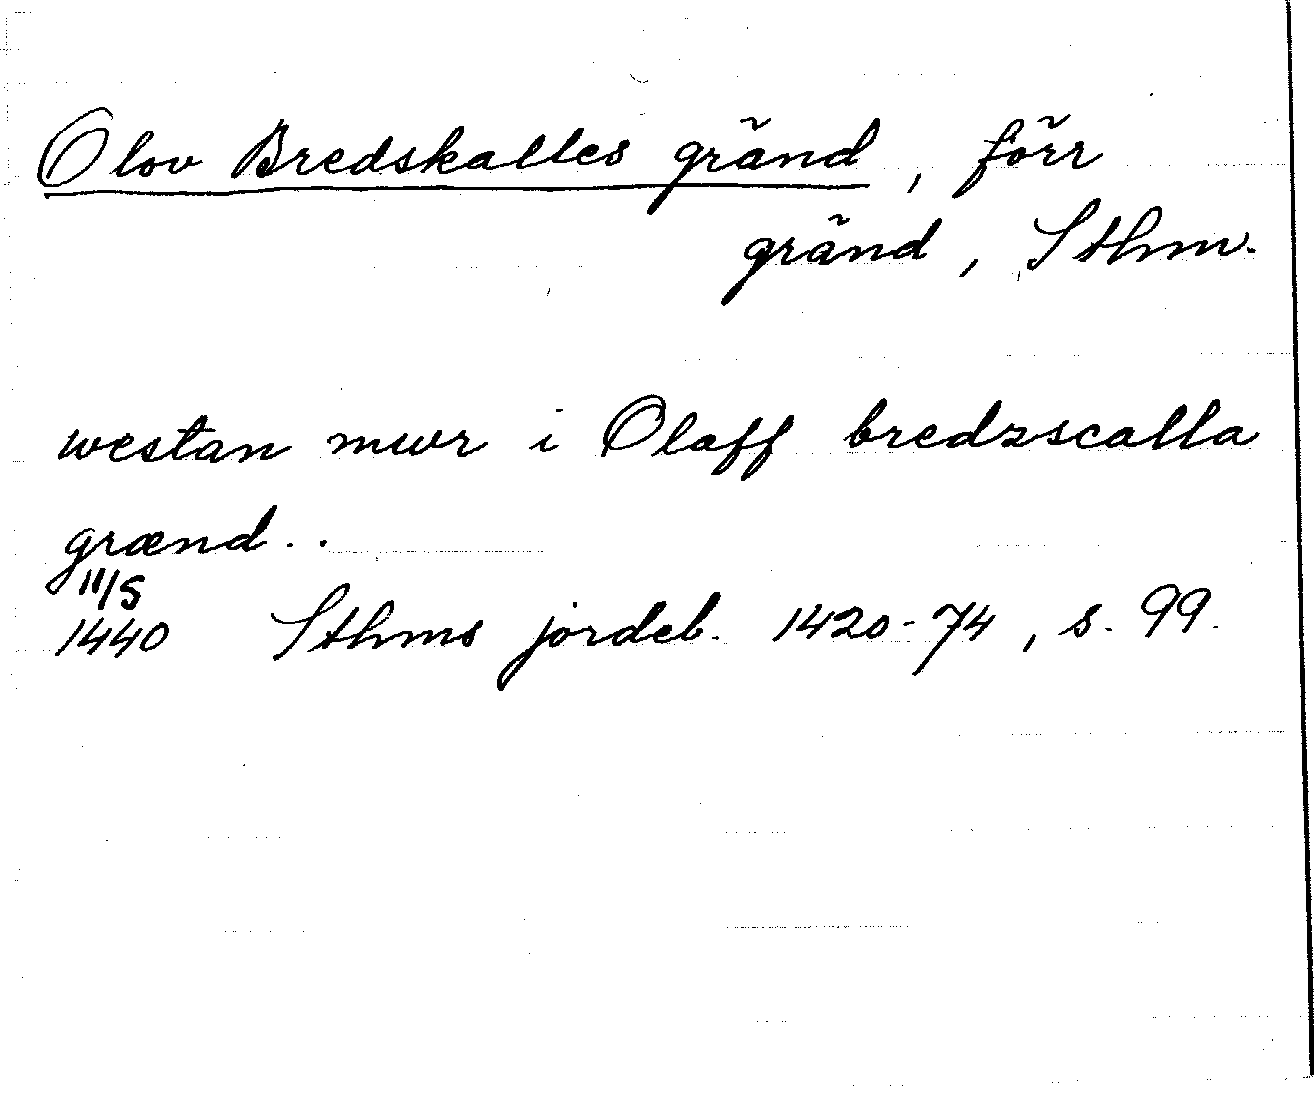 Olov Bredskalles gränd, förr
gränd, Sthm.
westan mwr i Olaff bredzscalla
grænd..
11/5
1440 Sthms jordeb. 1420-74, s. 99.